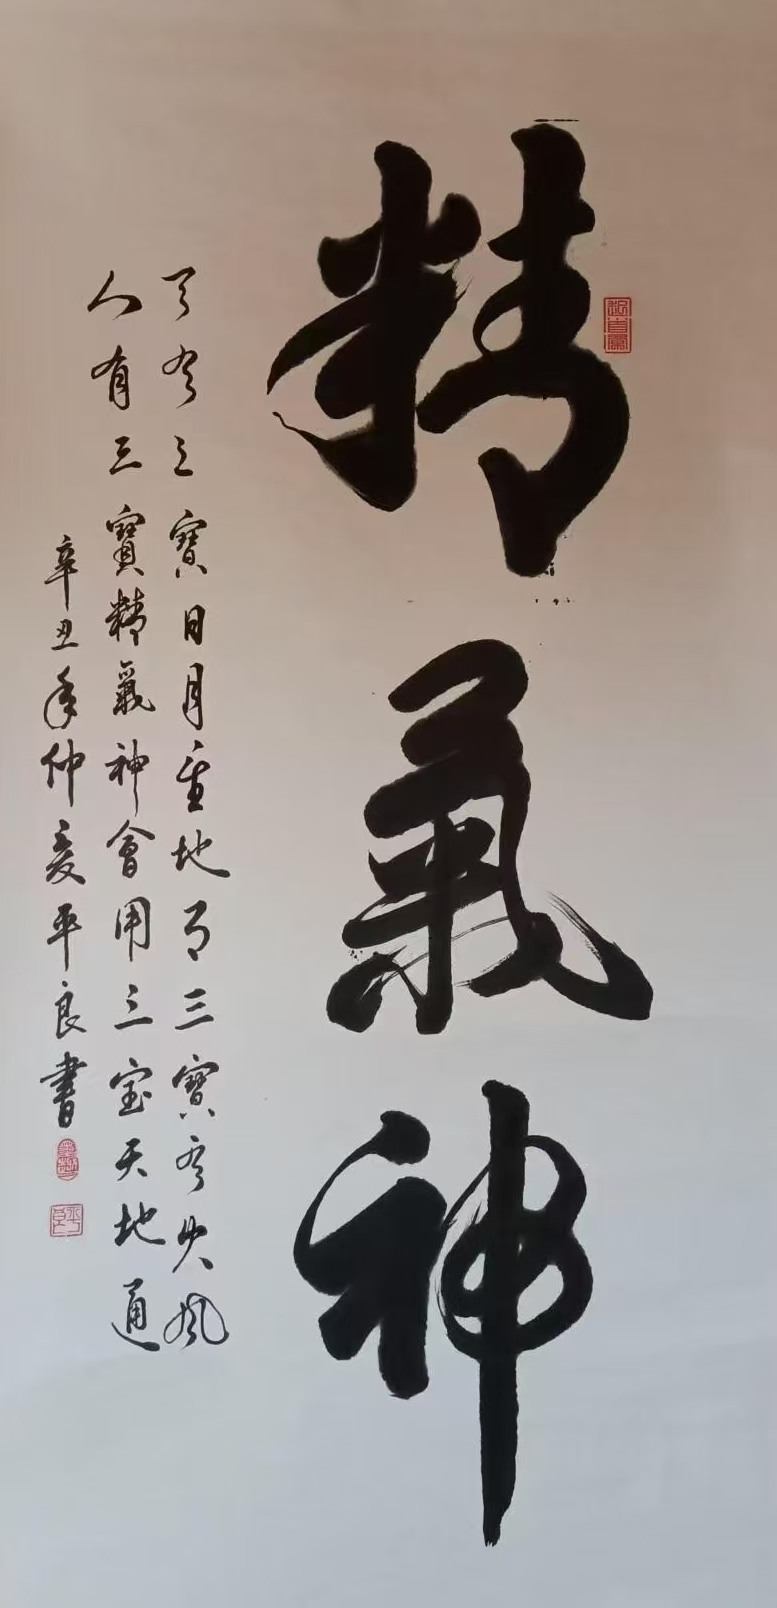 精氣神
天有三寶日月星地有三寶水火風
人有三寶精氣神會用三宝天地通
辛丑年仲夏平良書